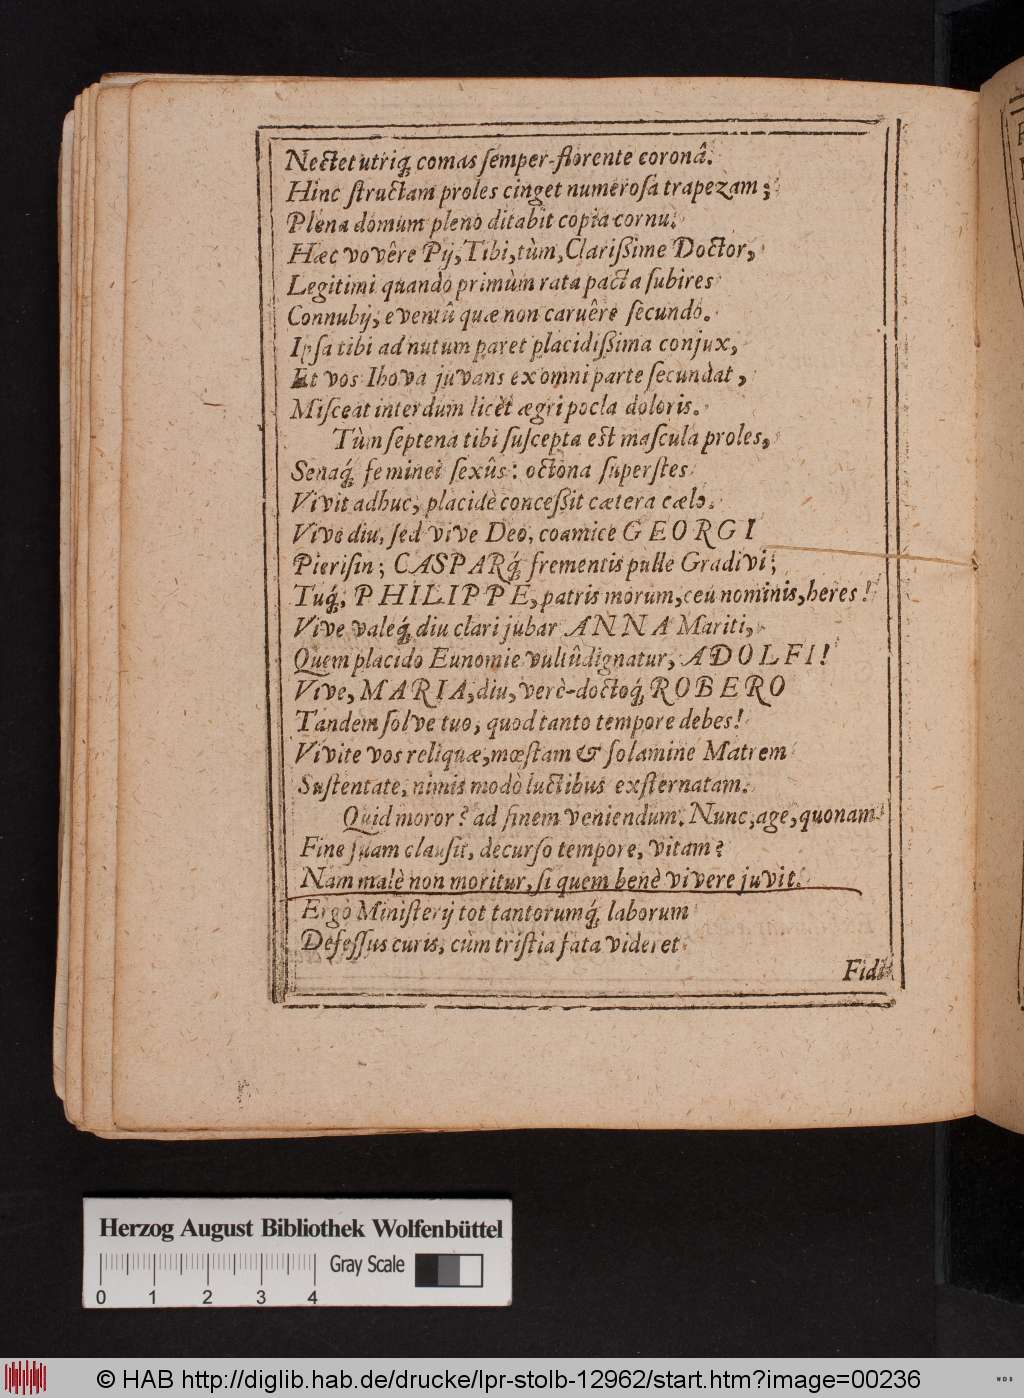 Nectet utriq́, comas ſemper-florente coronâ.
Hinc ſtructam proles cinget numeroſa trapezam;
Plena domum pleno ditabit copia cornu.
Hæc vovêre Pij, Tibi, tùm, Clarißime Doctor,
Legitimi quandò primùm rata pacta ſubires
Connubij, eventû quæ non caruêre ſecundo.
Ipſa tibi ad nutum paret placidißima conjux,
Et vos Ihova juvans ex omni parte ſecundat,
Miſceat interdùm licèt ægri pocla doloris.
Tùm ſeptena tibi ſuſcepta eſt maſcula proles,
Senaq́, feminei ſexûs: octona ſuperſtes
Vivit adhuc, placidè conceßit cætera cælo.
Vive diu, ſed vive Deo, coamice GEORGI
Pieriſin; CASPARq́, frementis pulle Gradivi;
Tuq́, PHILIPPE, patris morum, ceu nominis, heres!
Vive valeq́, diu clari jubar ANNA Mariti,
Quem placido Eunomie vultû dignatur, ADOLFI!
Vive, MARIA, diu, verè-doctoq́, ROBERO
Tandem ſolve tuo, quod tanto tempore debes!
Vivite vos reliquæ, mœſtam & ſolamine Matrem
Suſtentate, nimis modò luctibus exſternatam.
Quid moror? ad finem veniendum. Nunc, age, quonam
Fine ſuam clauſit, decurſo tempore, vitam?
Nam malè non moritur, ſi quem benè vivere juvit.
Ergò Miniſterij tot tantorumq́, laborum
Defeſſus curis, cùm triſtia fata videret
Fidi
Herzog August Bibliothek Wolfenbüttel
Gray Scale
0 1 2 3 4
© HAB http://diglib.hab.de/drucke/lpr-stolb-12962/start.htm?image=00236